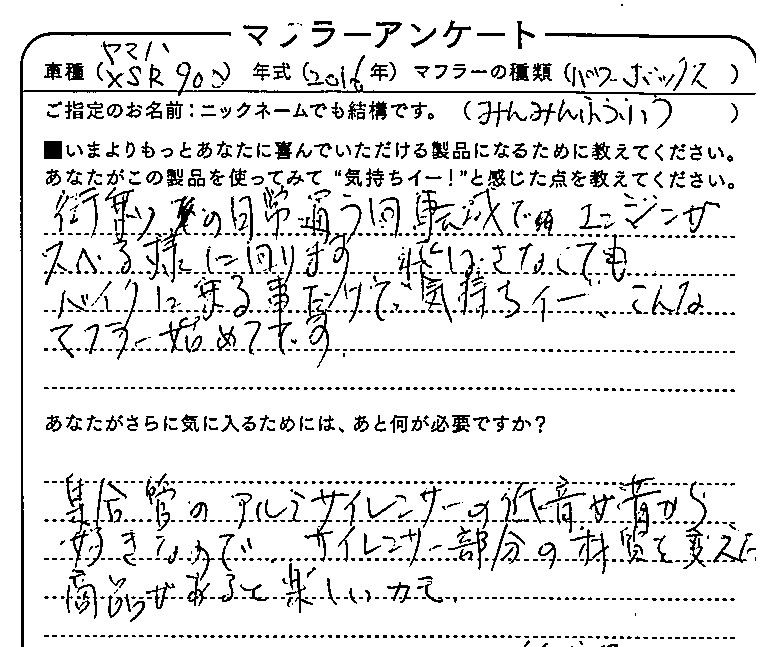 マフラーアンケート
ヤマハ
車種（XSR900） 年式（2016年） マフラーの種類（パワーボックス）
ご指定のお名前：ニックネームでも結構です。（みんみんふうふう）
■いまよりもっとあなたに喜んでいただける製品になるために教えてください。
あなたがこの製品を使ってみて“気持ちイー！”と感じた点を教えてください。
街乗りの日常通う回転域でエンジンが
スベる様に回ります 飛ばさなくても
バイクに乗る事だけで“気持ちイー”、こんな
マフラー始めてです。
あなたがさらに気に入るためには、あと何が必要ですか？
集合管のアルミサイレンサーの低音が昔から
好きなので、サイレンサー部分の材質を変えた
商品があると楽しいカモ。